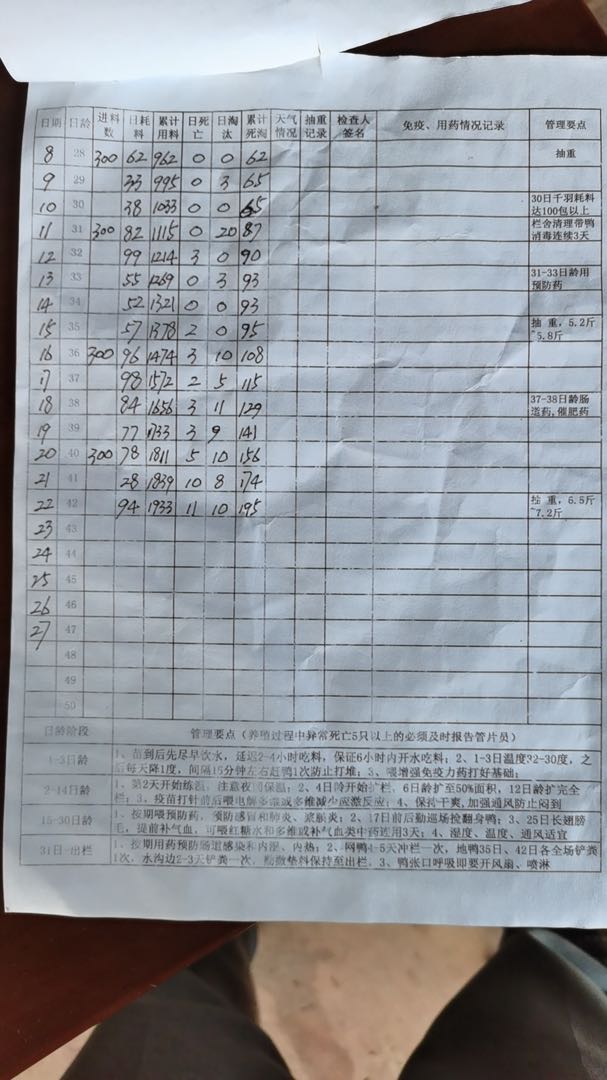 日期 日龄 进料数 日耗料 累计用料 日死亡 日淘汰 累计死淘 天气情况 抽重记录 检查人签名 免疫、用药情况记录 管理要点
8 28 300 62 962 0 0 62 抽重
9 29 33 995 0 3 65
10 30 38 1033 0 0 65 30日千羽耗料达100包以上
11 31 300 82 1115 0 20 87 栏舍清理带鸭消毒连续3天
12 32 99 1214 3 0 90
13 33 55 1269 0 3 93 31-33日龄用预防药
14 34 52 1321 0 0 93
15 35 57 1378 2 0 95 抽重,5.2斤~5.8斤
16 36 300 96 1474 3 10 108
17 37 98 1572 2 5 115
18 38 84 1656 3 11 129 37-38日龄肠道药,催肥药
19 39 77 1733 3 9 141
20 40 300 78 1811 5 10 156
21 41 28 1839 10 8 174
22 42 94 1933 11 10 195 抽重,6.5斤~7.2斤
23 43
24 44
25 45
26 46
27 47
48
49
50
日龄阶段 管理要点(养殖过程中异常死亡5只以上的必须及时报告管片员)
1-3日龄 1、苗到后先尽早饮水,延迟2-4小时吃料,保证6小时内开水吃料;2、1-3日温度32-30度,之
后每天降1度,间隔15分钟左右赶鸭1次防止打堆;3、喂增强免疫力药打好基础;
2-14日龄 1、第2天开始练温,注意夜间保温;2、4日龄开始扩栏,6日龄扩至50%面积,12日龄扩完全
栏;3、疫苗打针前后喂电解多维或多维减少应激反应;4、保持干爽,加强通风防止闷到
15-30日龄 1、按期喂预防药,预防感冒和肺炎、浆膜炎;2、17日前后勤巡场捡翻身鸭;3、25日长翅膀
毛,提前补气血,可喂红糖水和多维或补气血类中药连用3天;4、湿度、温度、通风适宜
31日-出栏 1、按期用药预防肠道感染和内湿、内热;2、网鸭4-5天冲栏一次,地鸭35日、42日各全场铲粪
1次,水沟边2-3天铲粪一次,勤撒垫料保持至出栏,3、鸭张口呼吸即要开风扇、喷淋